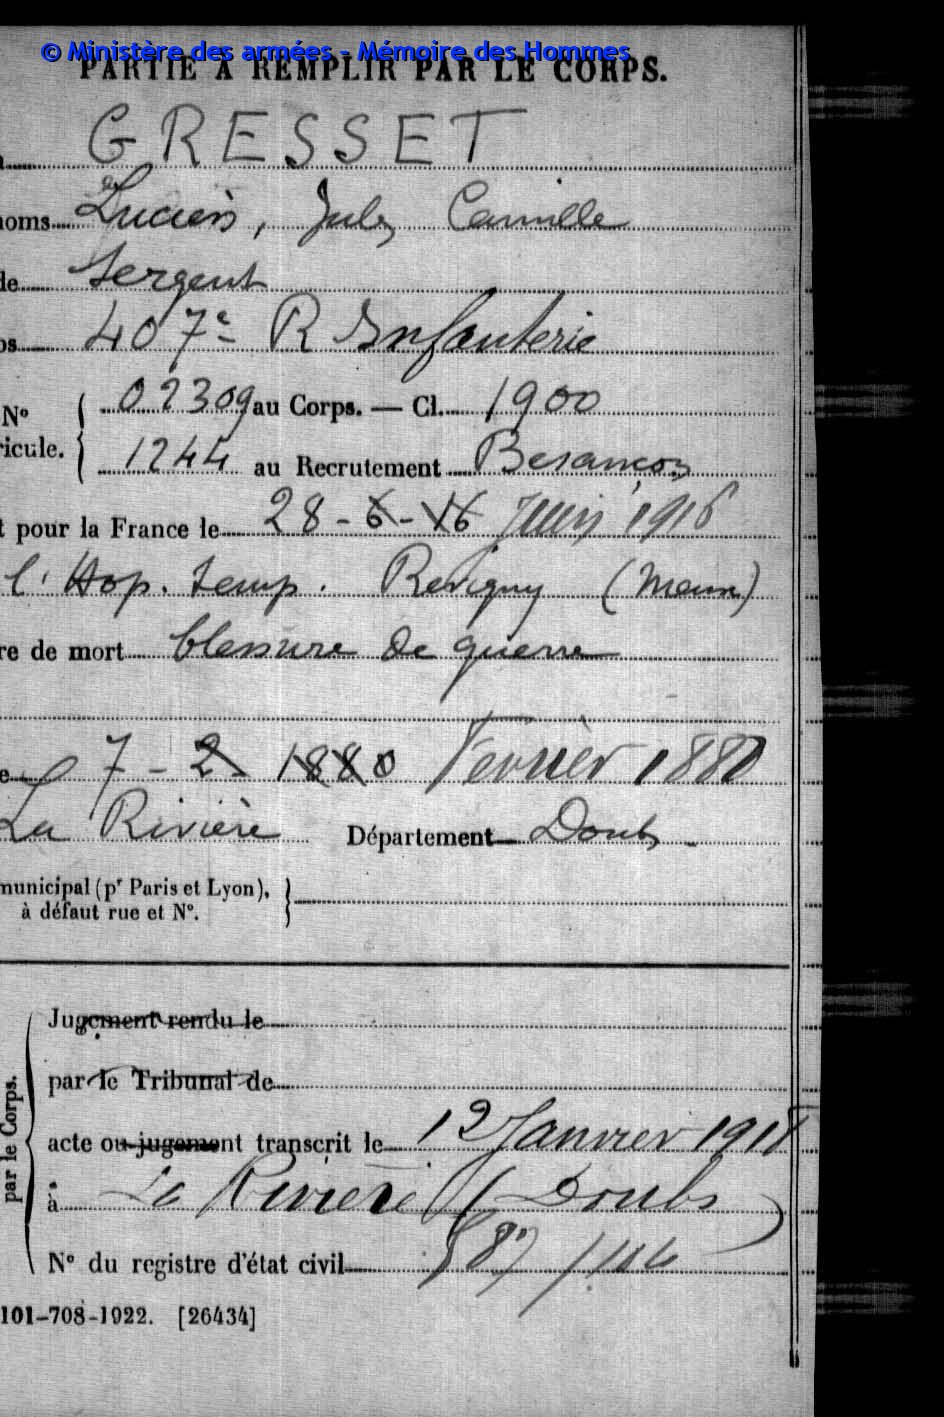 © Ministère des armées - Mémoire des Hommes
PARTIE À REMPLIR PAR LE CORPS.
GRESSET
noms Lucien, Jules Camille
de Sergent
ps 407e R Infanterie
N° 02309 au Corps. — Cl. 1900
ricule. 1244 au Recrutement Besançon
t pour la France le 28 - 6 - 16 Juin 1916
l'Hop. temp. Revigny (Meuse)
re de mort blessure de guerre
e 7 - 2 - 1880 Février 1880
La Rivière Département Doubs
municipal (pr Paris et Lyon),
à défaut rue et N°.
par le Corps.
Jugement rendu le
par le Tribunal de
acte ou jugement transcrit le 12 Janvier 1918
à La Rivière (Doubs)
N° du registre d'état civil
101-708-1922. [26434]